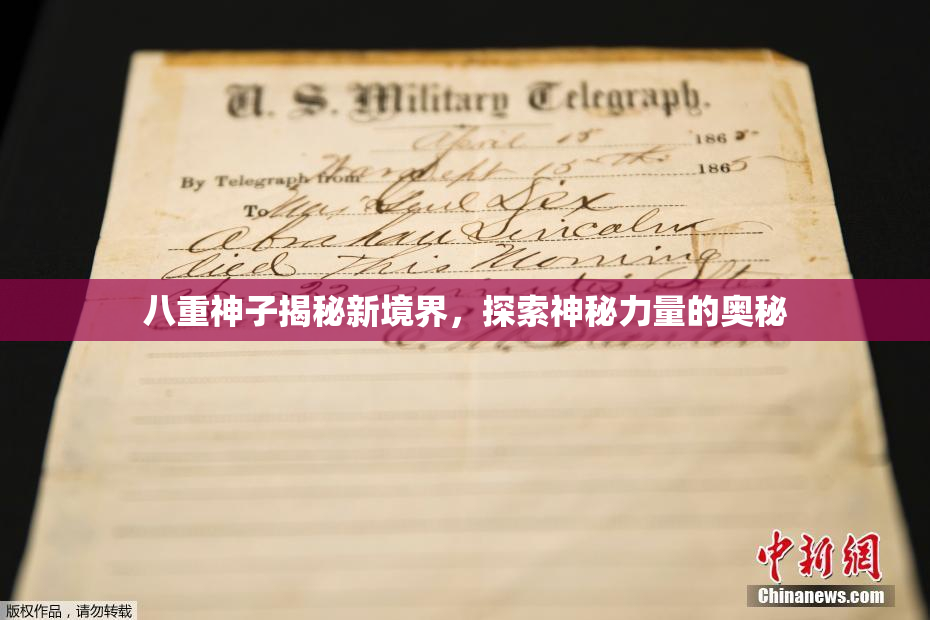 U. S. Military Telegraph.
April 15 1865
By Telegraph from War Dept 15th 1865
To Maj Genl Dix
Abraham Lincoln
died This Morning
at 22 minutes after
八重神子揭秘新境界，探索神秘力量的奥秘
E. M. Stanton
中新網
Chinanews.com
版权作品，请勿转载